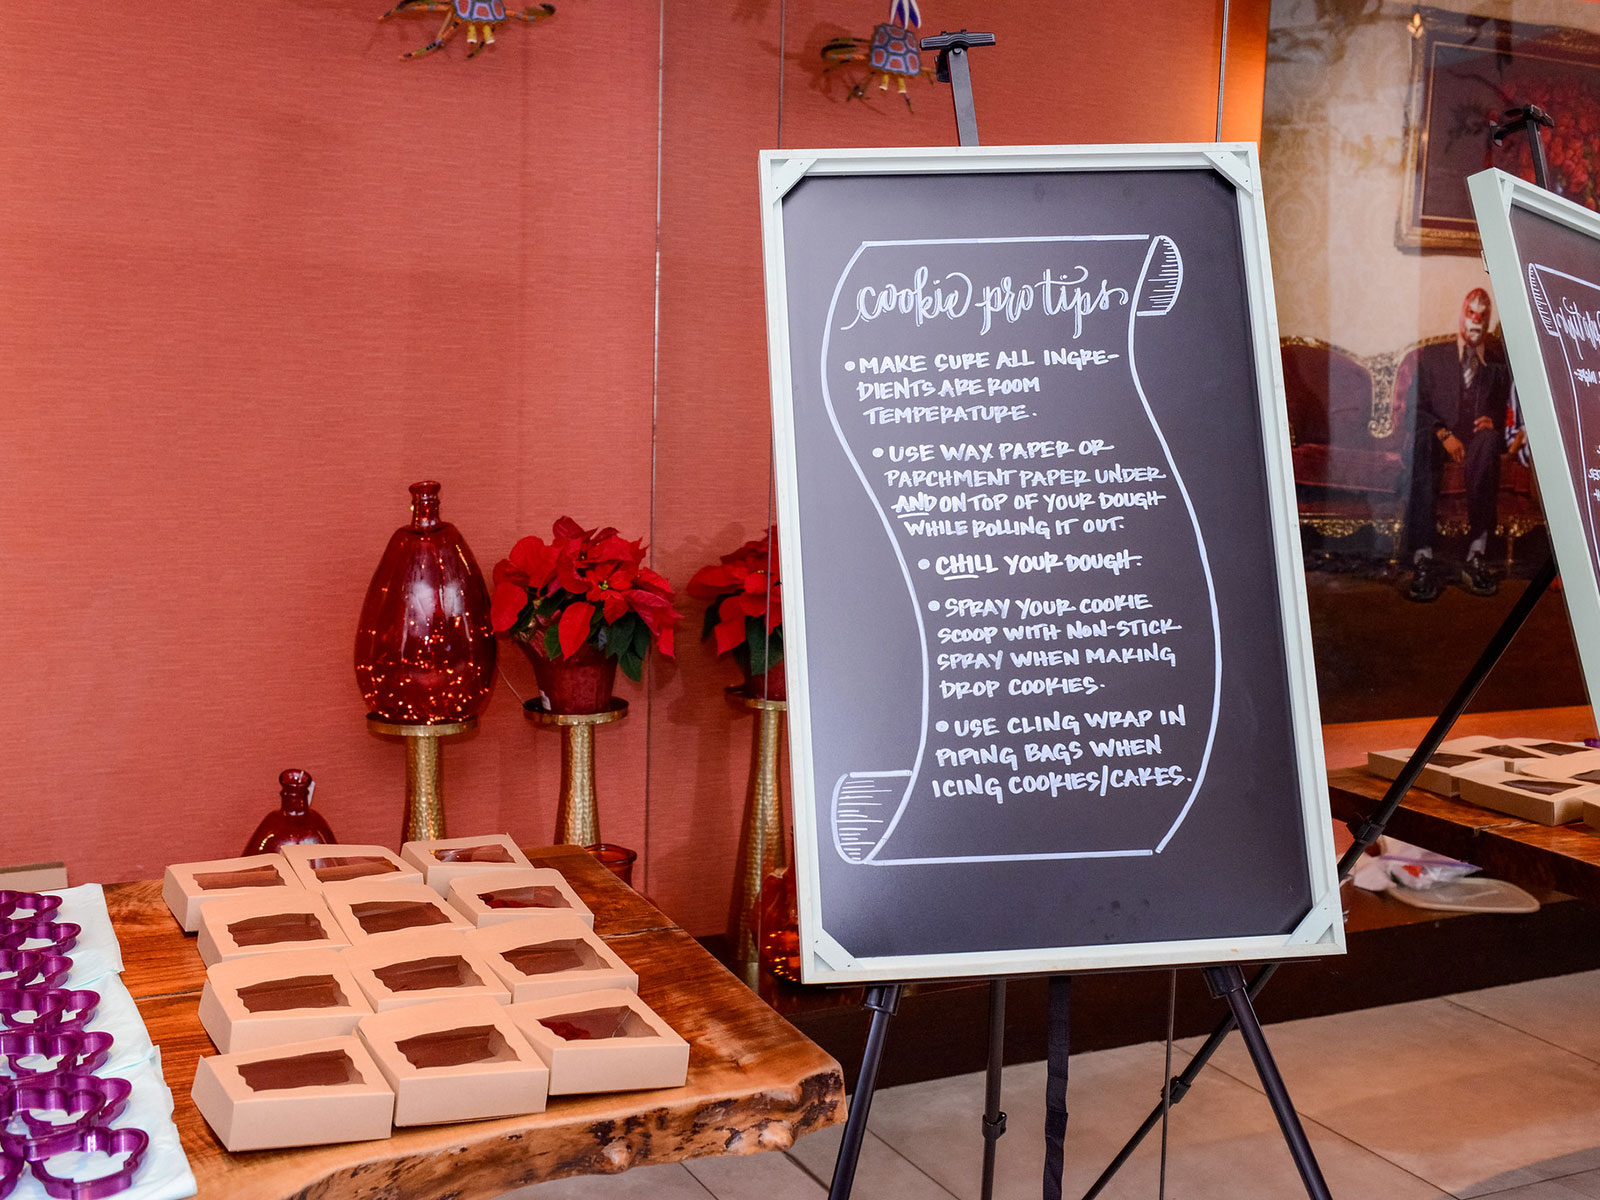 cookie pro tips
• MAKE SURE ALL INGRE-
DIENTS ARE ROOM
TEMPERATURE.
• USE WAX PAPER OR
PARCHMENT PAPER UNDER
AND ON TOP OF YOUR DOUGH
WHILE ROLLING IT OUT.
• CHILL YOUR DOUGH.
• SPRAY YOUR COOKIE
SCOOP WITH NON-STICK
SPRAY WHEN MAKING
DROP COOKIES.
• USE CLING WRAP IN
PIPING BAGS WHEN
ICING COOKIES/CAKES.